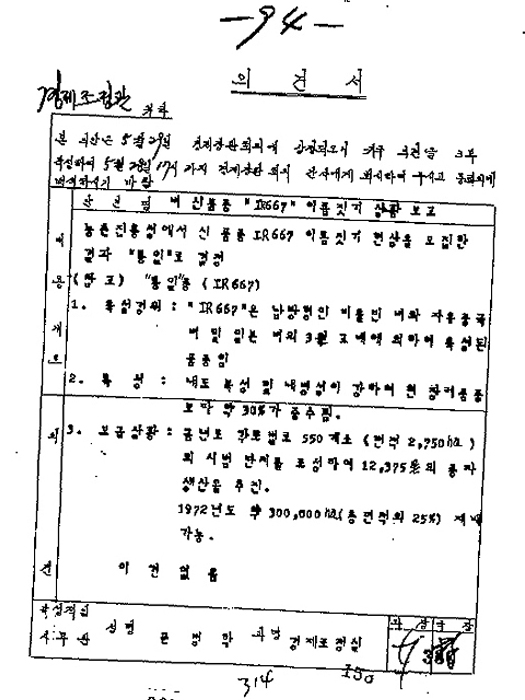 -94-
의 견 서
경제조정관 귀하
본 의안은 5월 29일 경제장관회의에 상정되오니 귀하 의견을 3부
작성하여 5월 28일 17시 까지 경제장관 회의 간사에게 회시하여 주시고 동회의에
안건명 벼 신품종 "IR667" 이름짓기 상황 보고
농촌진흥청에서 신 품종 IR667 이름짓기 현상을 모집한
결과 "통일"로 결정
(참고) "통일"종 (IR667)
1. 육성경위 : "IR667"은 남방형인 비율빈 벼와 자유중국
벼 및 일본 벼의 3원 교배에 의하여 육성된
품종임
2. 특성 : 내도복성 및 내병성이 강하여 현 장려품종
보다 약 30%가 증수됨.
3. 보급상황 : 금년도 전국 550개소 (면적 2,750ha)
의 시범 단지를 조성하여 12,375톤의 종자
생산을 추진.
1972년도 약 300,000ha(총면적의 25%) 재배
가능.
의 견
이 견 없 음
작성책임
사무관
성명
과명 경제조정실
과 장 국 장
314
150